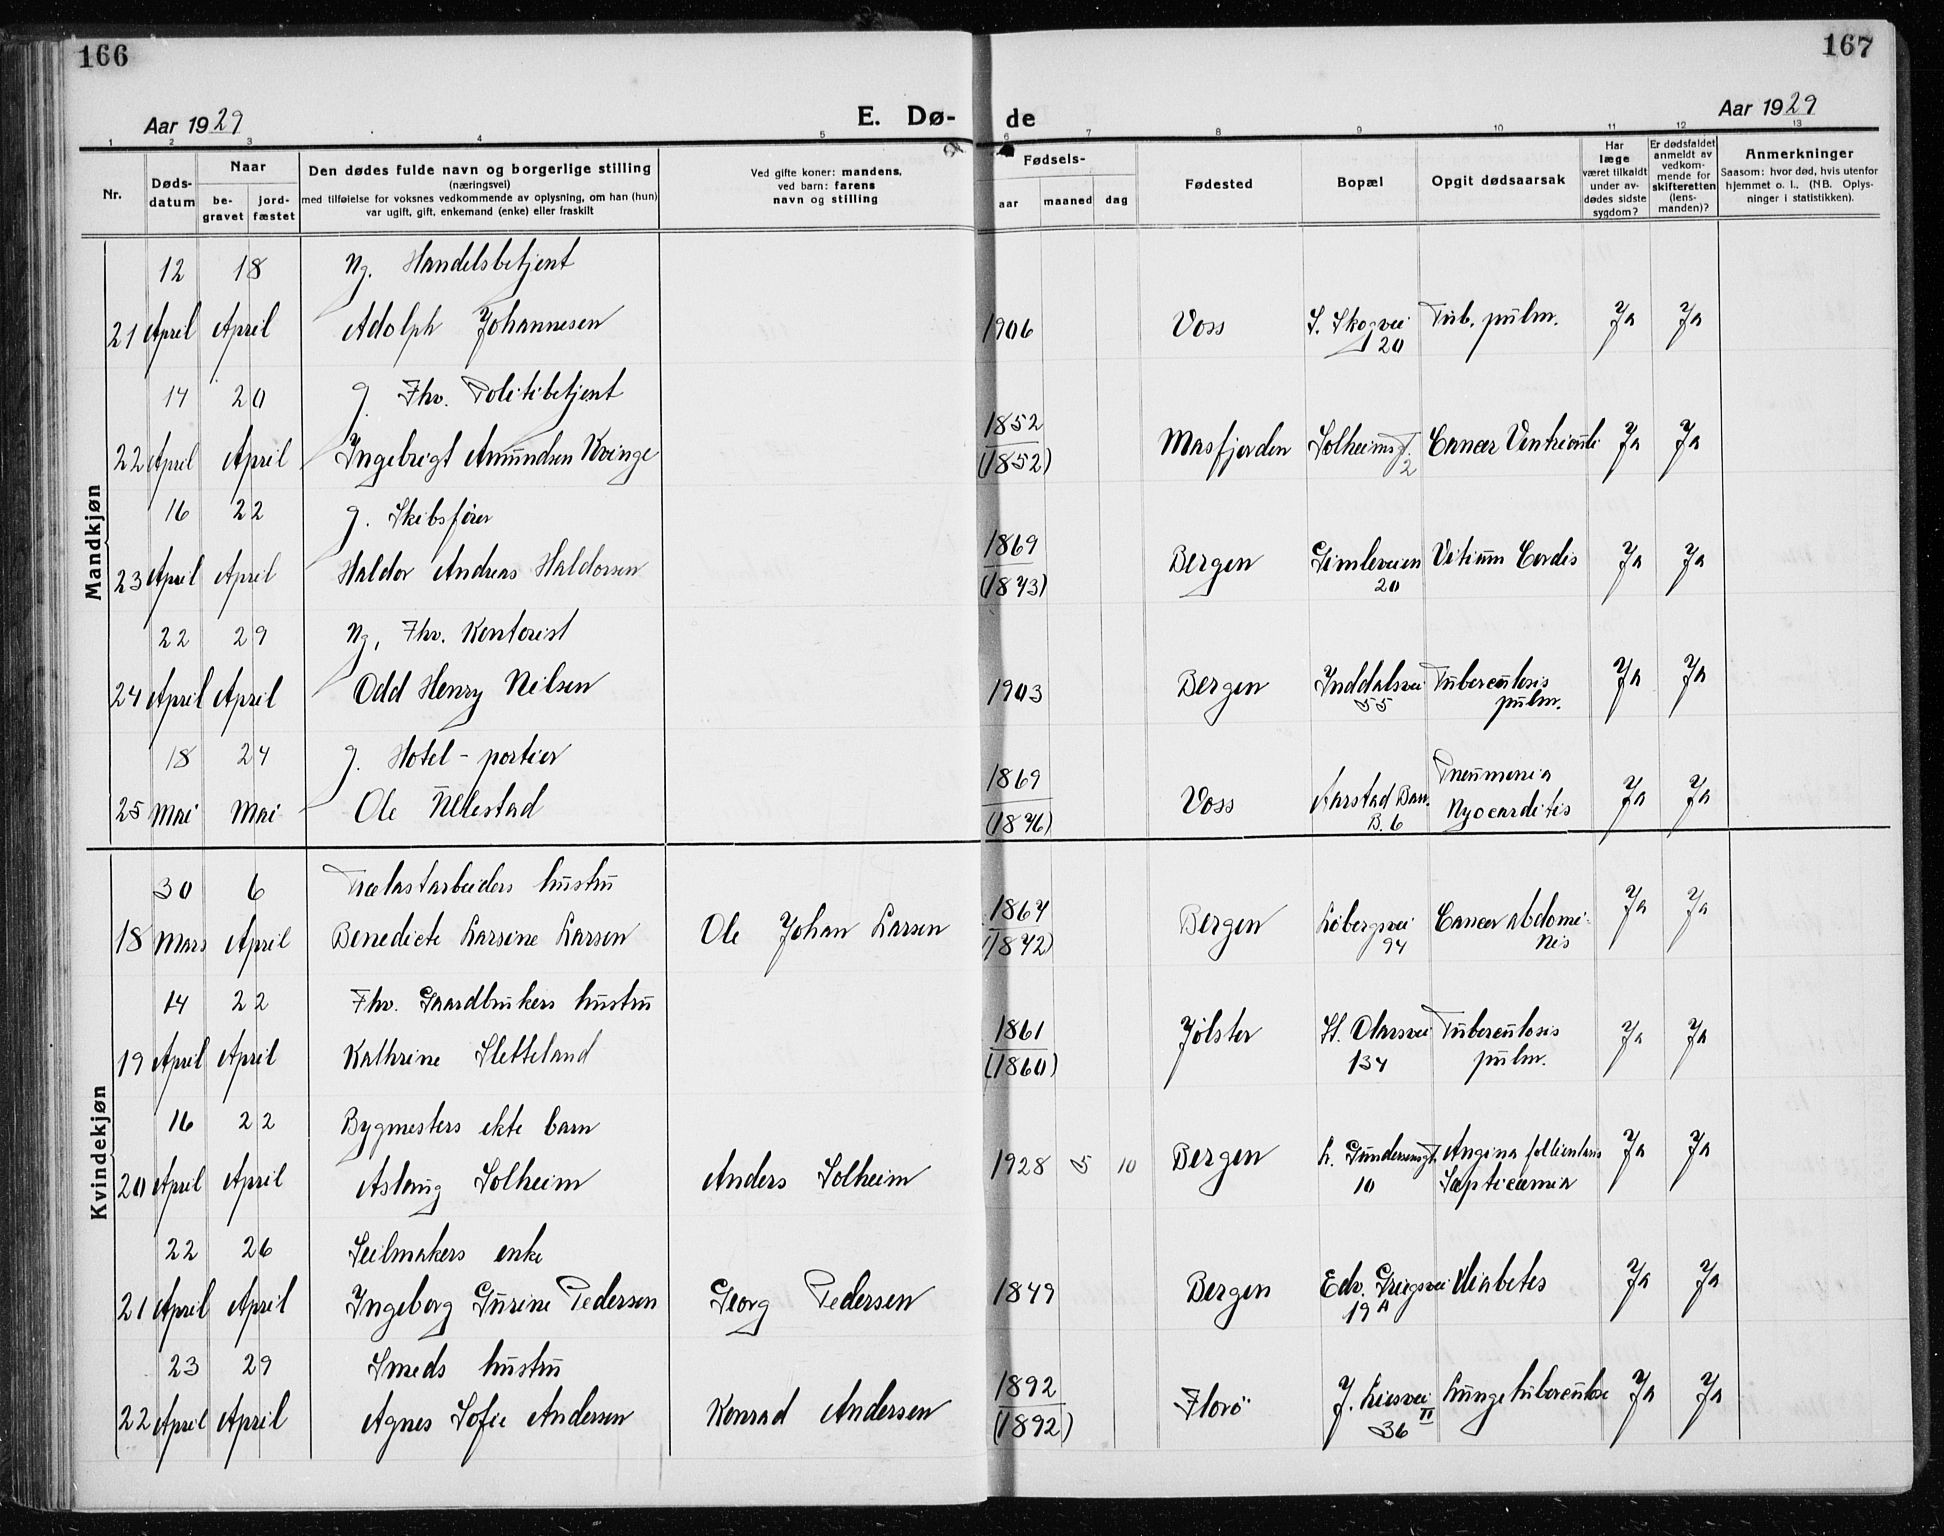 166
167
Aar 1929
E. Dø- de
Aar 1929
1 2 3 4 5 6 7 8 9 10 11 12 13
Nr.
Døds-
datum
Naar
be-
gravet
jord-
fæstet
Den dødes fulde navn og borgerlige stilling
(næringsvei)
med tilføielse for voksnes vedkommende av oplysning, om han (hun)
var ugift, gift, enkemand (enke) eller fraskilt
Ved gifte koner: mandens,
ved barn: farens
navn og stilling
Fødsels-
aar maaned dag
Fødested
Bopæl
Opgit dødsaarsak
Har
læge
været tilkaldt
under av-
dødes sidste
sygdom?
Er dødsfaldet
anmeldt av
vedkom-
mende for
skifteretten
(lens-
manden)?
Anmerkninger
Saasom: hvor død, hvis utenfor
hjemmet o. l.. (NB. Oplys-
ninger i statistikken).
Mandkjøn
12 18 Ug. Handelsbetjent
21 April April Adolph Johannesen 1906 Voss S. Skogvei Tub. pulm. Ja Ja
20
14 20 g. Fhv. Politibetjent
1852
22 April April Ingebrigt Amundsen Kvinge Masfjorden Solheimsg. Cancer Ventriculi Ja Ja
(1852) 2
16 22 g. Skibsfører
1869
23 April April Haldor Andreas Haldorsen Bergen Gimleveien Vitium Cordis Ja Ja
(1873) 20
22 29 Ug, Fhv. Kontorist
24 April April Odd Henry Nilsen 1903 Bergen Inddalsvei Tuberculosis Ja Ja
55 pulm.
18 24 g. Hotel-portier
1869 Pneumonia
25 Mai Mai Ole Ullestad Voss Aarstad Bar. Myocarditis Ja Ja
(1876) B. 6
Kvindekjøn
30 6 Trælastarbeiders hustru
1867
18 Mars April Benedicte Larsine Larsen Ole Johan Larsen Bergen Løbergsvei Cancer abdomi- Ja Ja
(1872) 94 nis
14 22 Fhv. Gaardbrukers hustru
1861
19 April April Kathrine Sletteland Jølster St. Olavsvei Tuberculosis Ja Ja
(1860) 134 pulm.
16 22 Bygmesters ekte barn
20 April April Aslaug Solheim Anders Solheim 1928 5 10 Bergen L. Gundersensgt. Angina follicularis Ja Ja
10 Septicæmia
22 26 Seilmakers enke
21 April April Ingeborg Gurine Pedersen Georg Pedersen 1849 Bergen Edv. Griegsvei Diabetes Ja Ja
19 A
23 29 Smeds hustru
1892
22 April April Agnes Sofie Andersen Konrad Andersen Florø J. Liesvei Lungetuberculose Ja Ja
(1892) 36 II